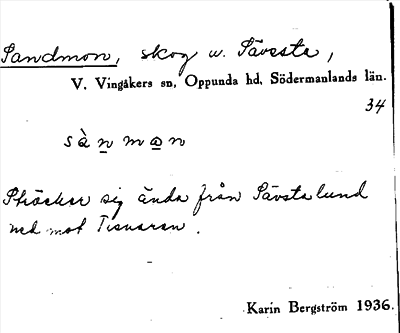 Sandmon, skog w. Sävsta,
V. Vingåkers sn, Oppunda hd, Södermanlands län.
34
sànmo̲n
Sträcker sig ända från Sävstalund
ned mot Tisnaren.
Karin Bergström 1936.